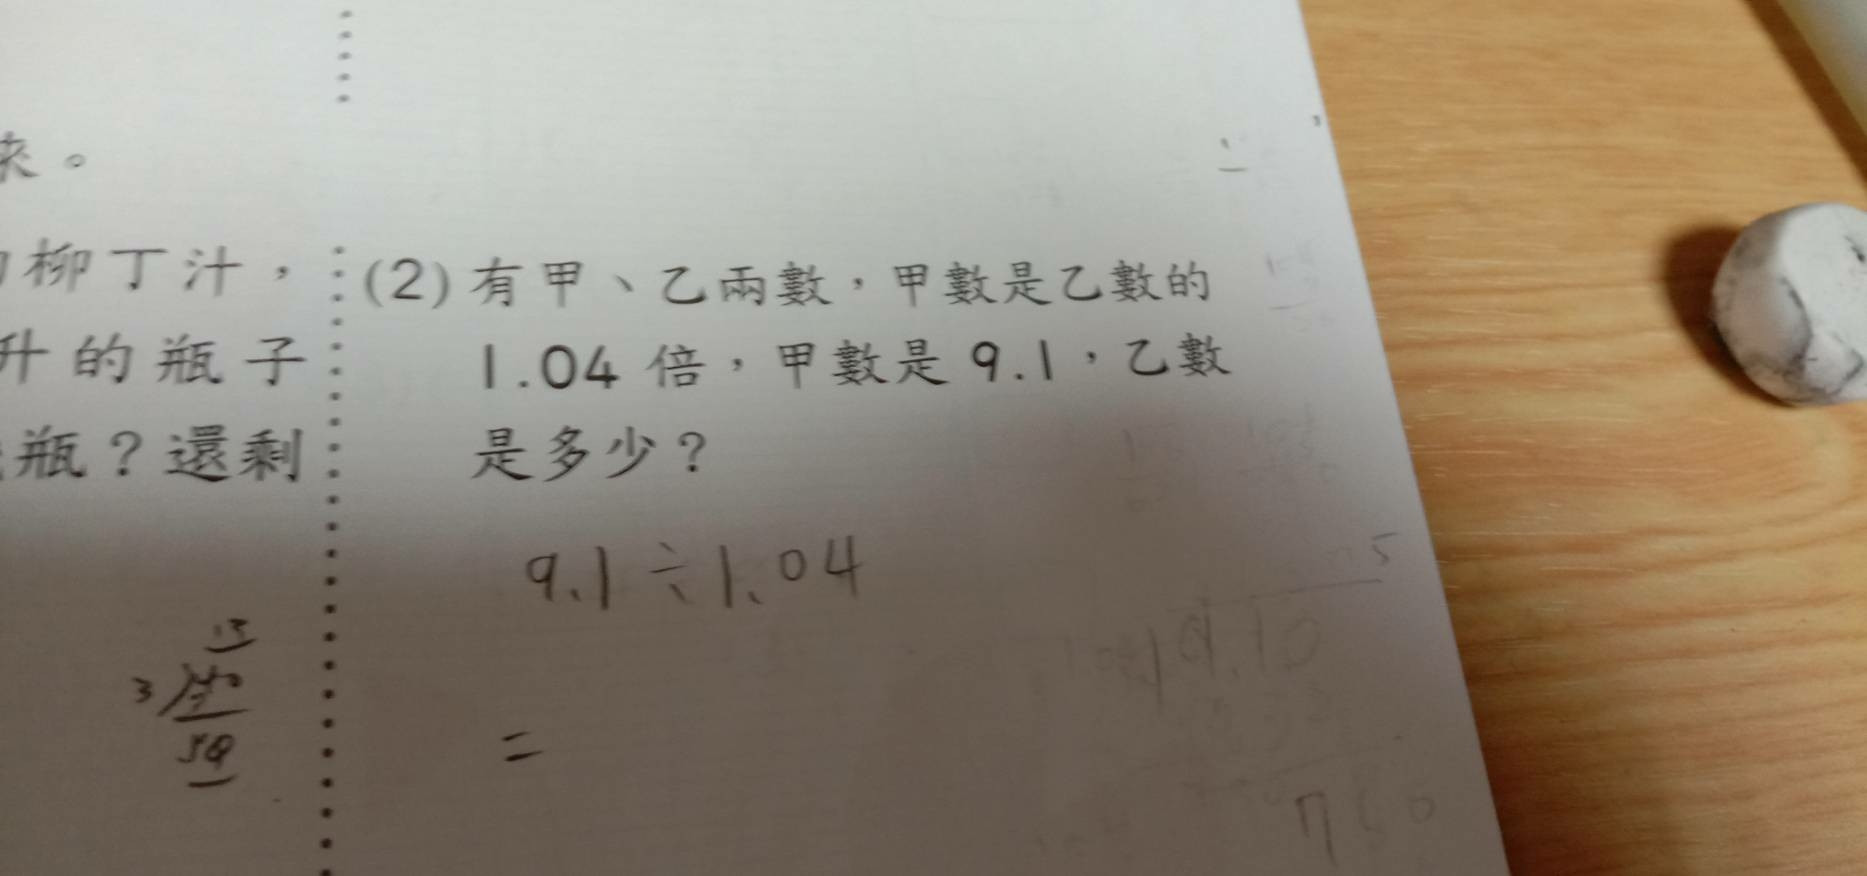 來。
柳丁汁，
升的瓶子
瓶？還剩
(2)有甲、乙兩數，甲數是乙數的
1.04倍，甲數是9.1，乙數
是多少？
9.1÷1.04
=
9.10